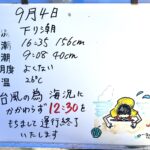 9月4日
下り潮
満 16:35 156cm
干潮 9:08 40cm
明度 よくたい
温 28℃
台風の為 海況に
かかわらず 12:30を
もちまして運行終了
いたします